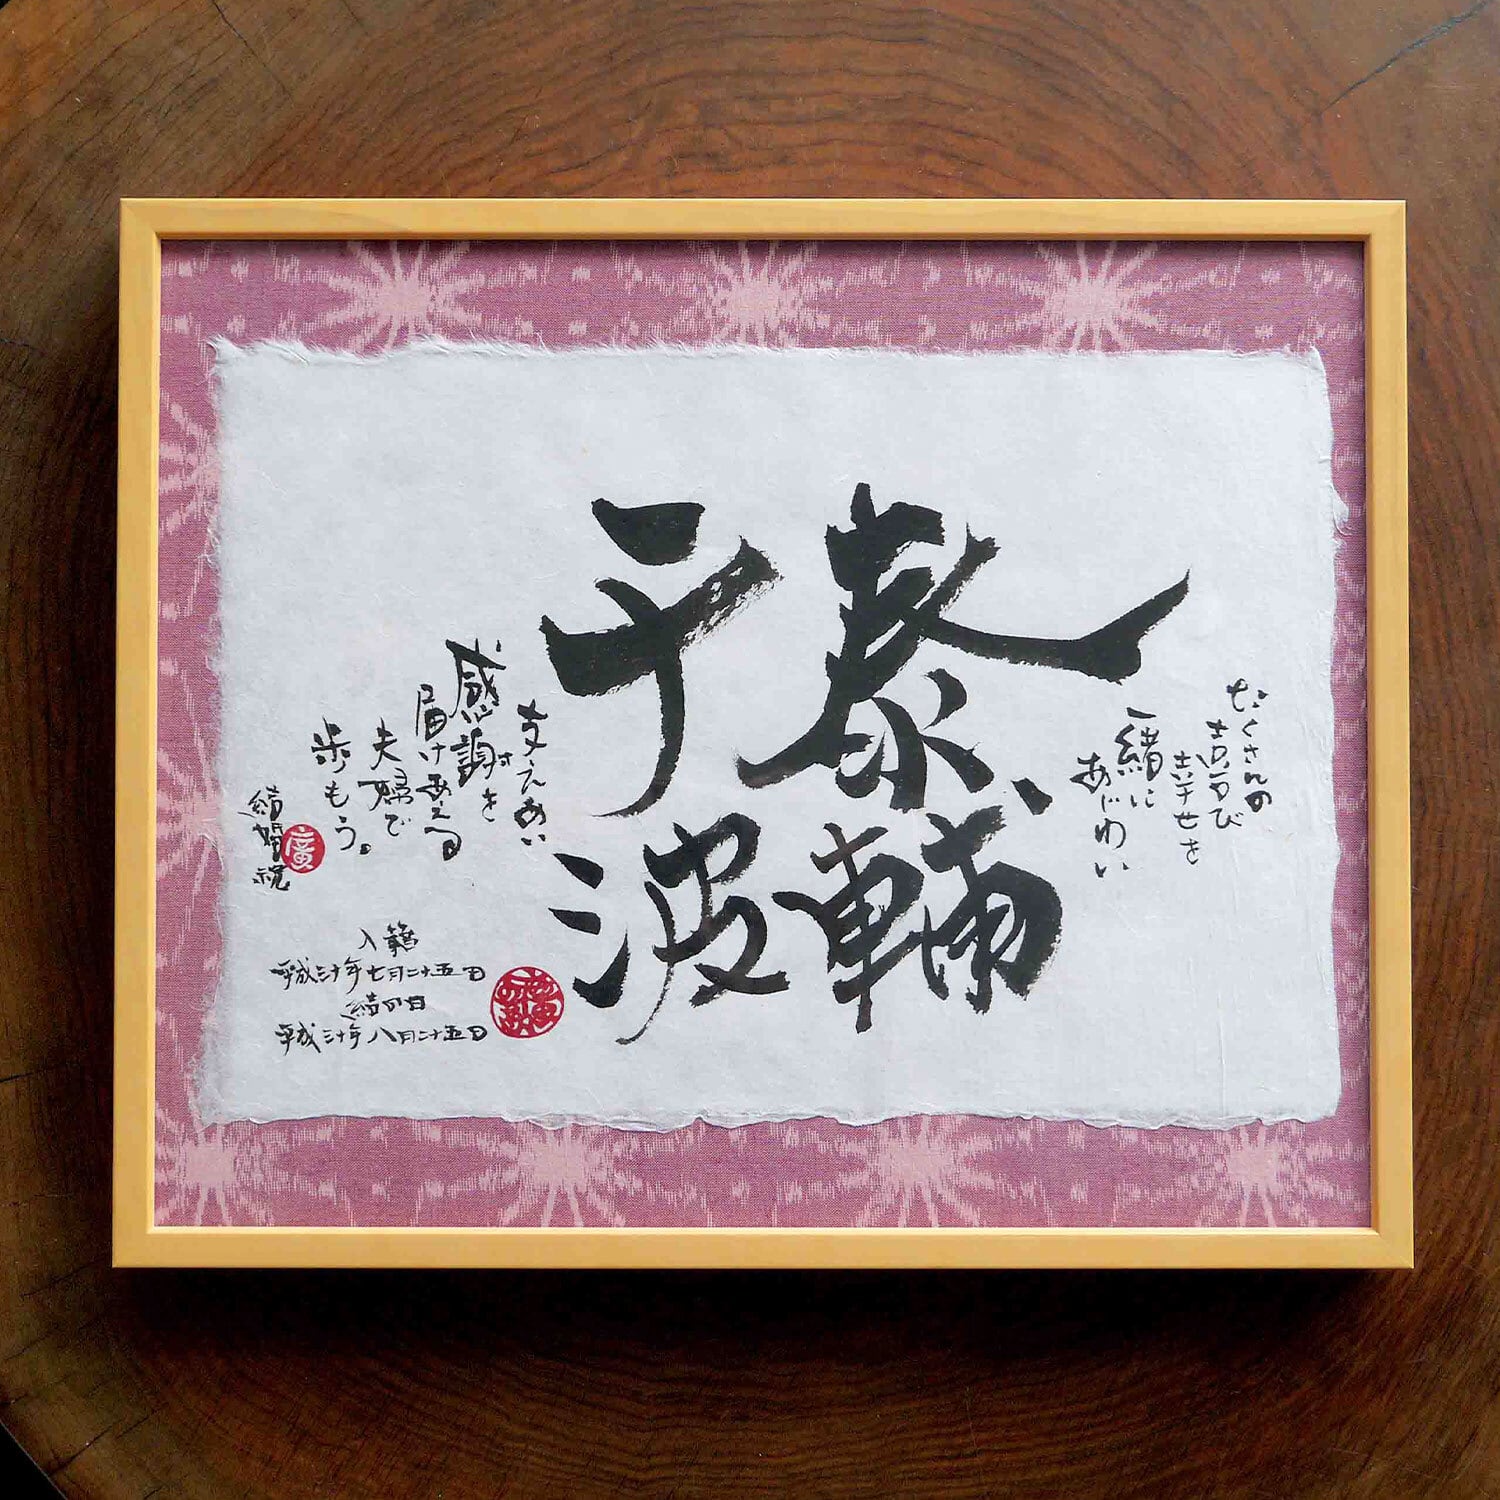 たくさんの
喜び
幸せを
一緒に
あじわい
泰輔
千波
支えあい
感謝を
届けあえる
夫婦で
歩もう。
結婚祝
入籍
平成三十年七月二十五日
結の日
平成三十年八月二十五日